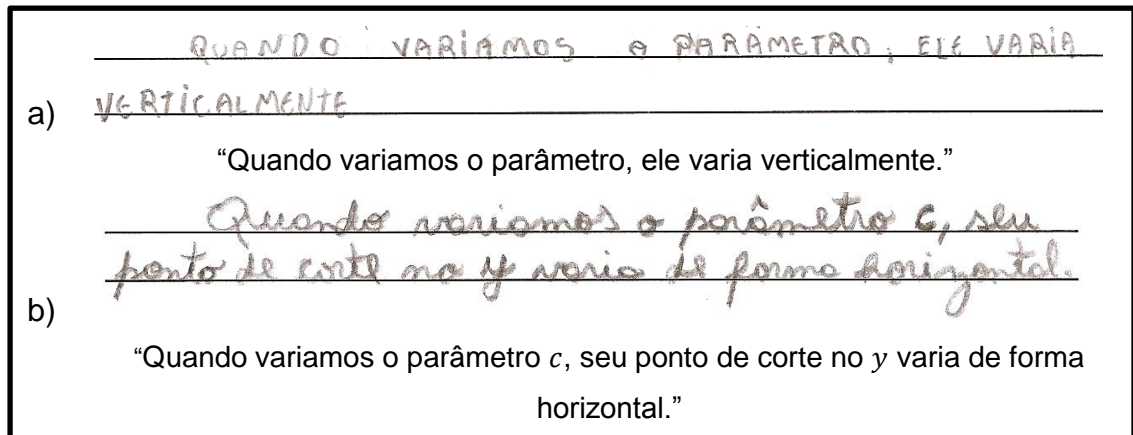 QUANDO VARIAMOS O PARÂMETRO, ELE VARIA
VERTICALMENTE
a)
“Quando variamos o parâmetro, ele varia verticalmente.”
Quando variamos o parâmetro c, seu
ponto de corte no y varia de forma horizontal.
b)
“Quando variamos o parâmetro c, seu ponto de corte no y varia de forma
horizontal.”